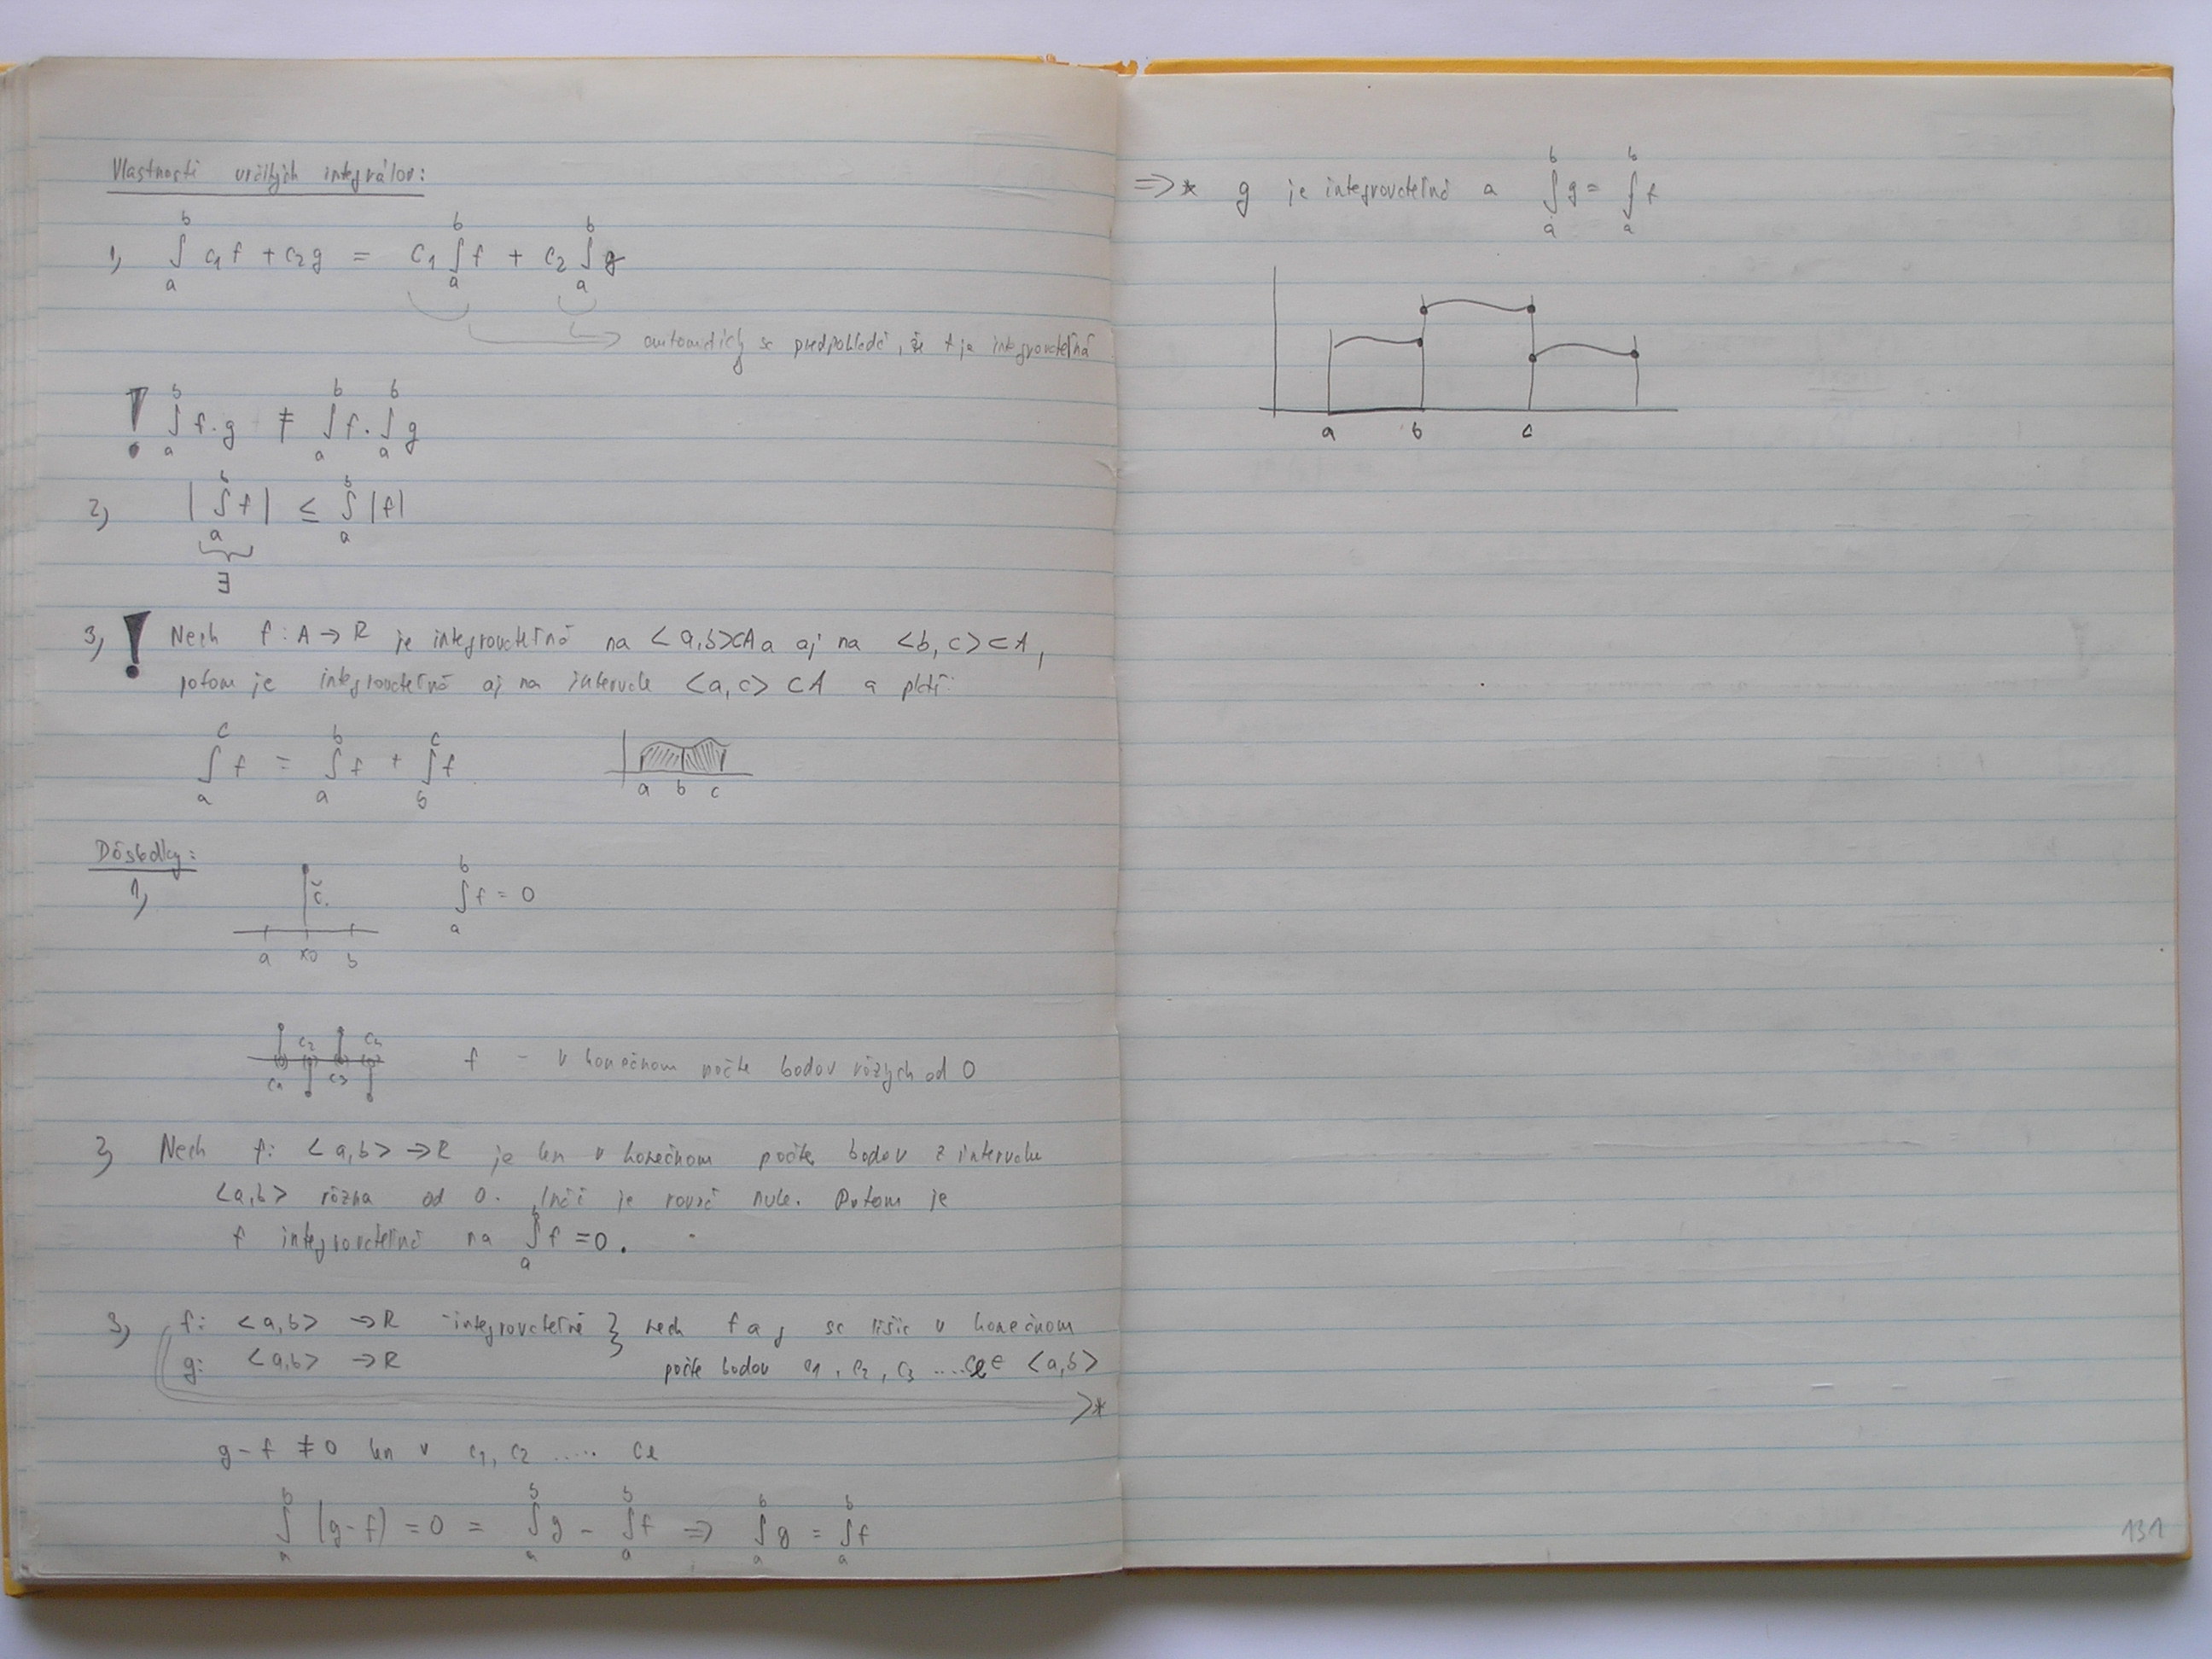 Vlastnosti určitých integrálov:
1, ∫_a^b c1 f + c2 g = C1 ∫_a^b f + c2 ∫_a^b g
automaticky sa predpokladá, že f je integrovateľná
! ∫_a^b f.g ≠ ∫_a^b f . ∫_a^b g
2, | ∫_a^b f | ≤ ∫_a^b |f|
∃
3, ! Nech f: A → R je integrovateľná na <a,b>⊂A a aj na <b,c>⊂A,
potom je integrovateľná aj na intervale <a,c> ⊂A a platí:
∫_a^c f = ∫_a^b f + ∫_b^c f
a b c
Dôsledky:
1, č. ∫_a^b f = 0
a x0 b
c2 c4
c1 c3
f - v konečnom počte bodov rôzych od 0
2, Nech f: <a,b> → R je len v konečnom počte bodov z intervalu
<a,b> rôzna od 0. Ináč je rovná nule. Potom je
f integrovateľná na ∫_a^b f = 0.
3, f: <a,b> → R - integrovateľné } nech f a g sa líšia v konečnom
g: <a,b> → R počte bodov c1, c2, c3 .... cl ∈ <a,b>
⇒*
g-f ≠ 0 len v c1, c2 ..... cl
∫_a^b (g-f) = 0 = ∫_a^b g - ∫_a^b f ⇒ ∫_a^b g = ∫_a^b f
⇒* g je integrovateľná a ∫_a^b g = ∫_a^b f
a b c
131